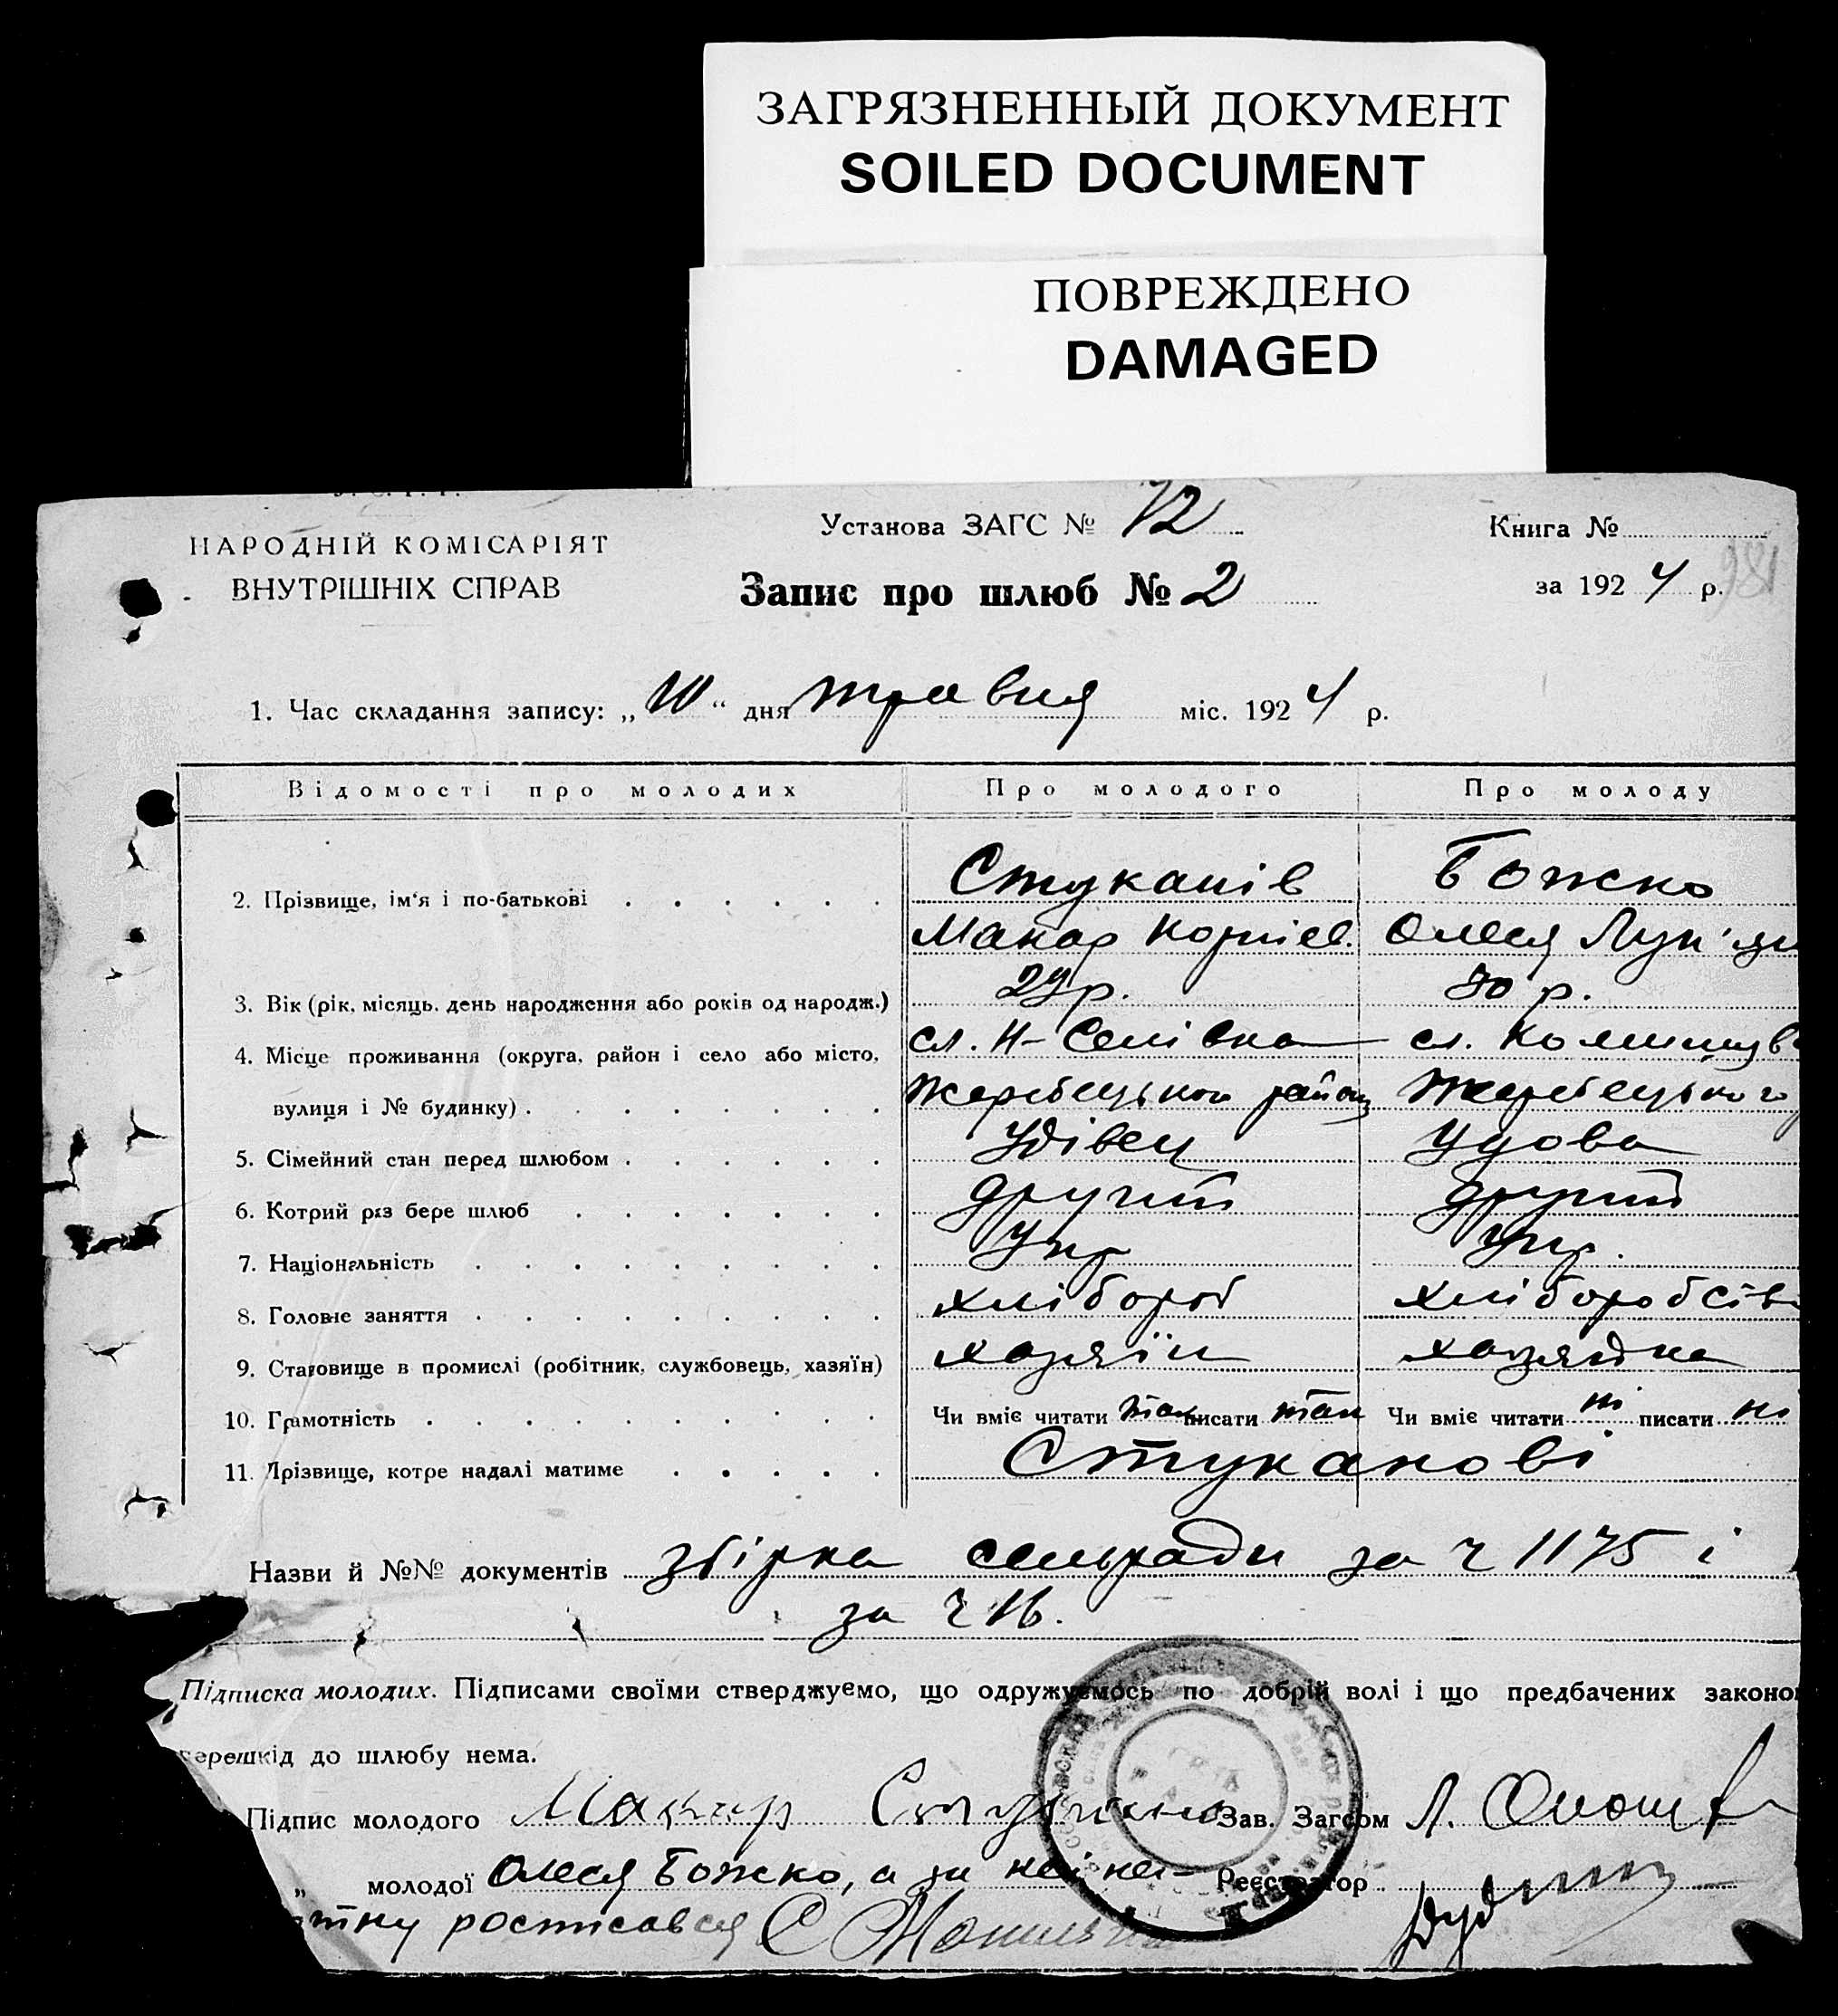 ЗАГРЯЗНЕННЫЙ ДОКУМЕНТ
SOILED DOCUMENT
ПОВРЕЖДЕНО
DAMAGED
НАРОДНІЙ КОМІСАРІЯТ
ВНУТРІШНІХ СПРАВ
Установа ЗАГС № 12
Запис про шлюб № 2
Книга №
за 1924 р.
981
1. Час складання запису: „10“ дня травня міс. 1924 р.
Відомості про молодих Про молодого Про молоду
2. Прізвище, ім'я і по-батькові Стуканів Божко
Макар Корнієв. Олеся Лук'ян
3. Вік (рік, місяць, день народження або років од народж.) 29 р. 30 р.
4. Місце проживання (округа, район і село або місто, сл. Н-Селівка сл.
вулиця і № будинку) Жеребецького району Жеребецького
5. Сімейний стан перед шлюбом Удівец Удова
6. Котрий раз бере шлюб другий другий
7. Національність Укр Укр.
8. Головне заняття хлібороб хліборобсів
9. Становище в промислі (робітник, службовець, хазяїн) хазяїн хазяйка
10. Грамотність Чи вміє читати так писати так Чи вміє читати ні писати ні
11. Прізвище, котре надалі матиме Стуканові
Назви й №№ документів збірка сельради за ч 1175 і
за ч 16.
Підписка молодих. Підписами своїми стверджуємо, що одружуємось по добрій волі і що предбачених законо
перешкід до шлюбу нема.
Підпис молодого Макар Стукано Зав. Загсом Л.
„ молодої Олеся Божко, а за неї не- Реєстратор
тну росписався С